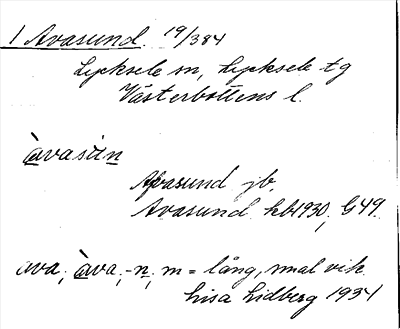 1 Avasund. 19/384
Lycksele sn, Lycksele tg
Västerbottens l.
àvasún
Avasund jb.
Avasund hb1930, G49.
ava, àva, -n, m = lång, smal vik
Lisa Lidberg 1934